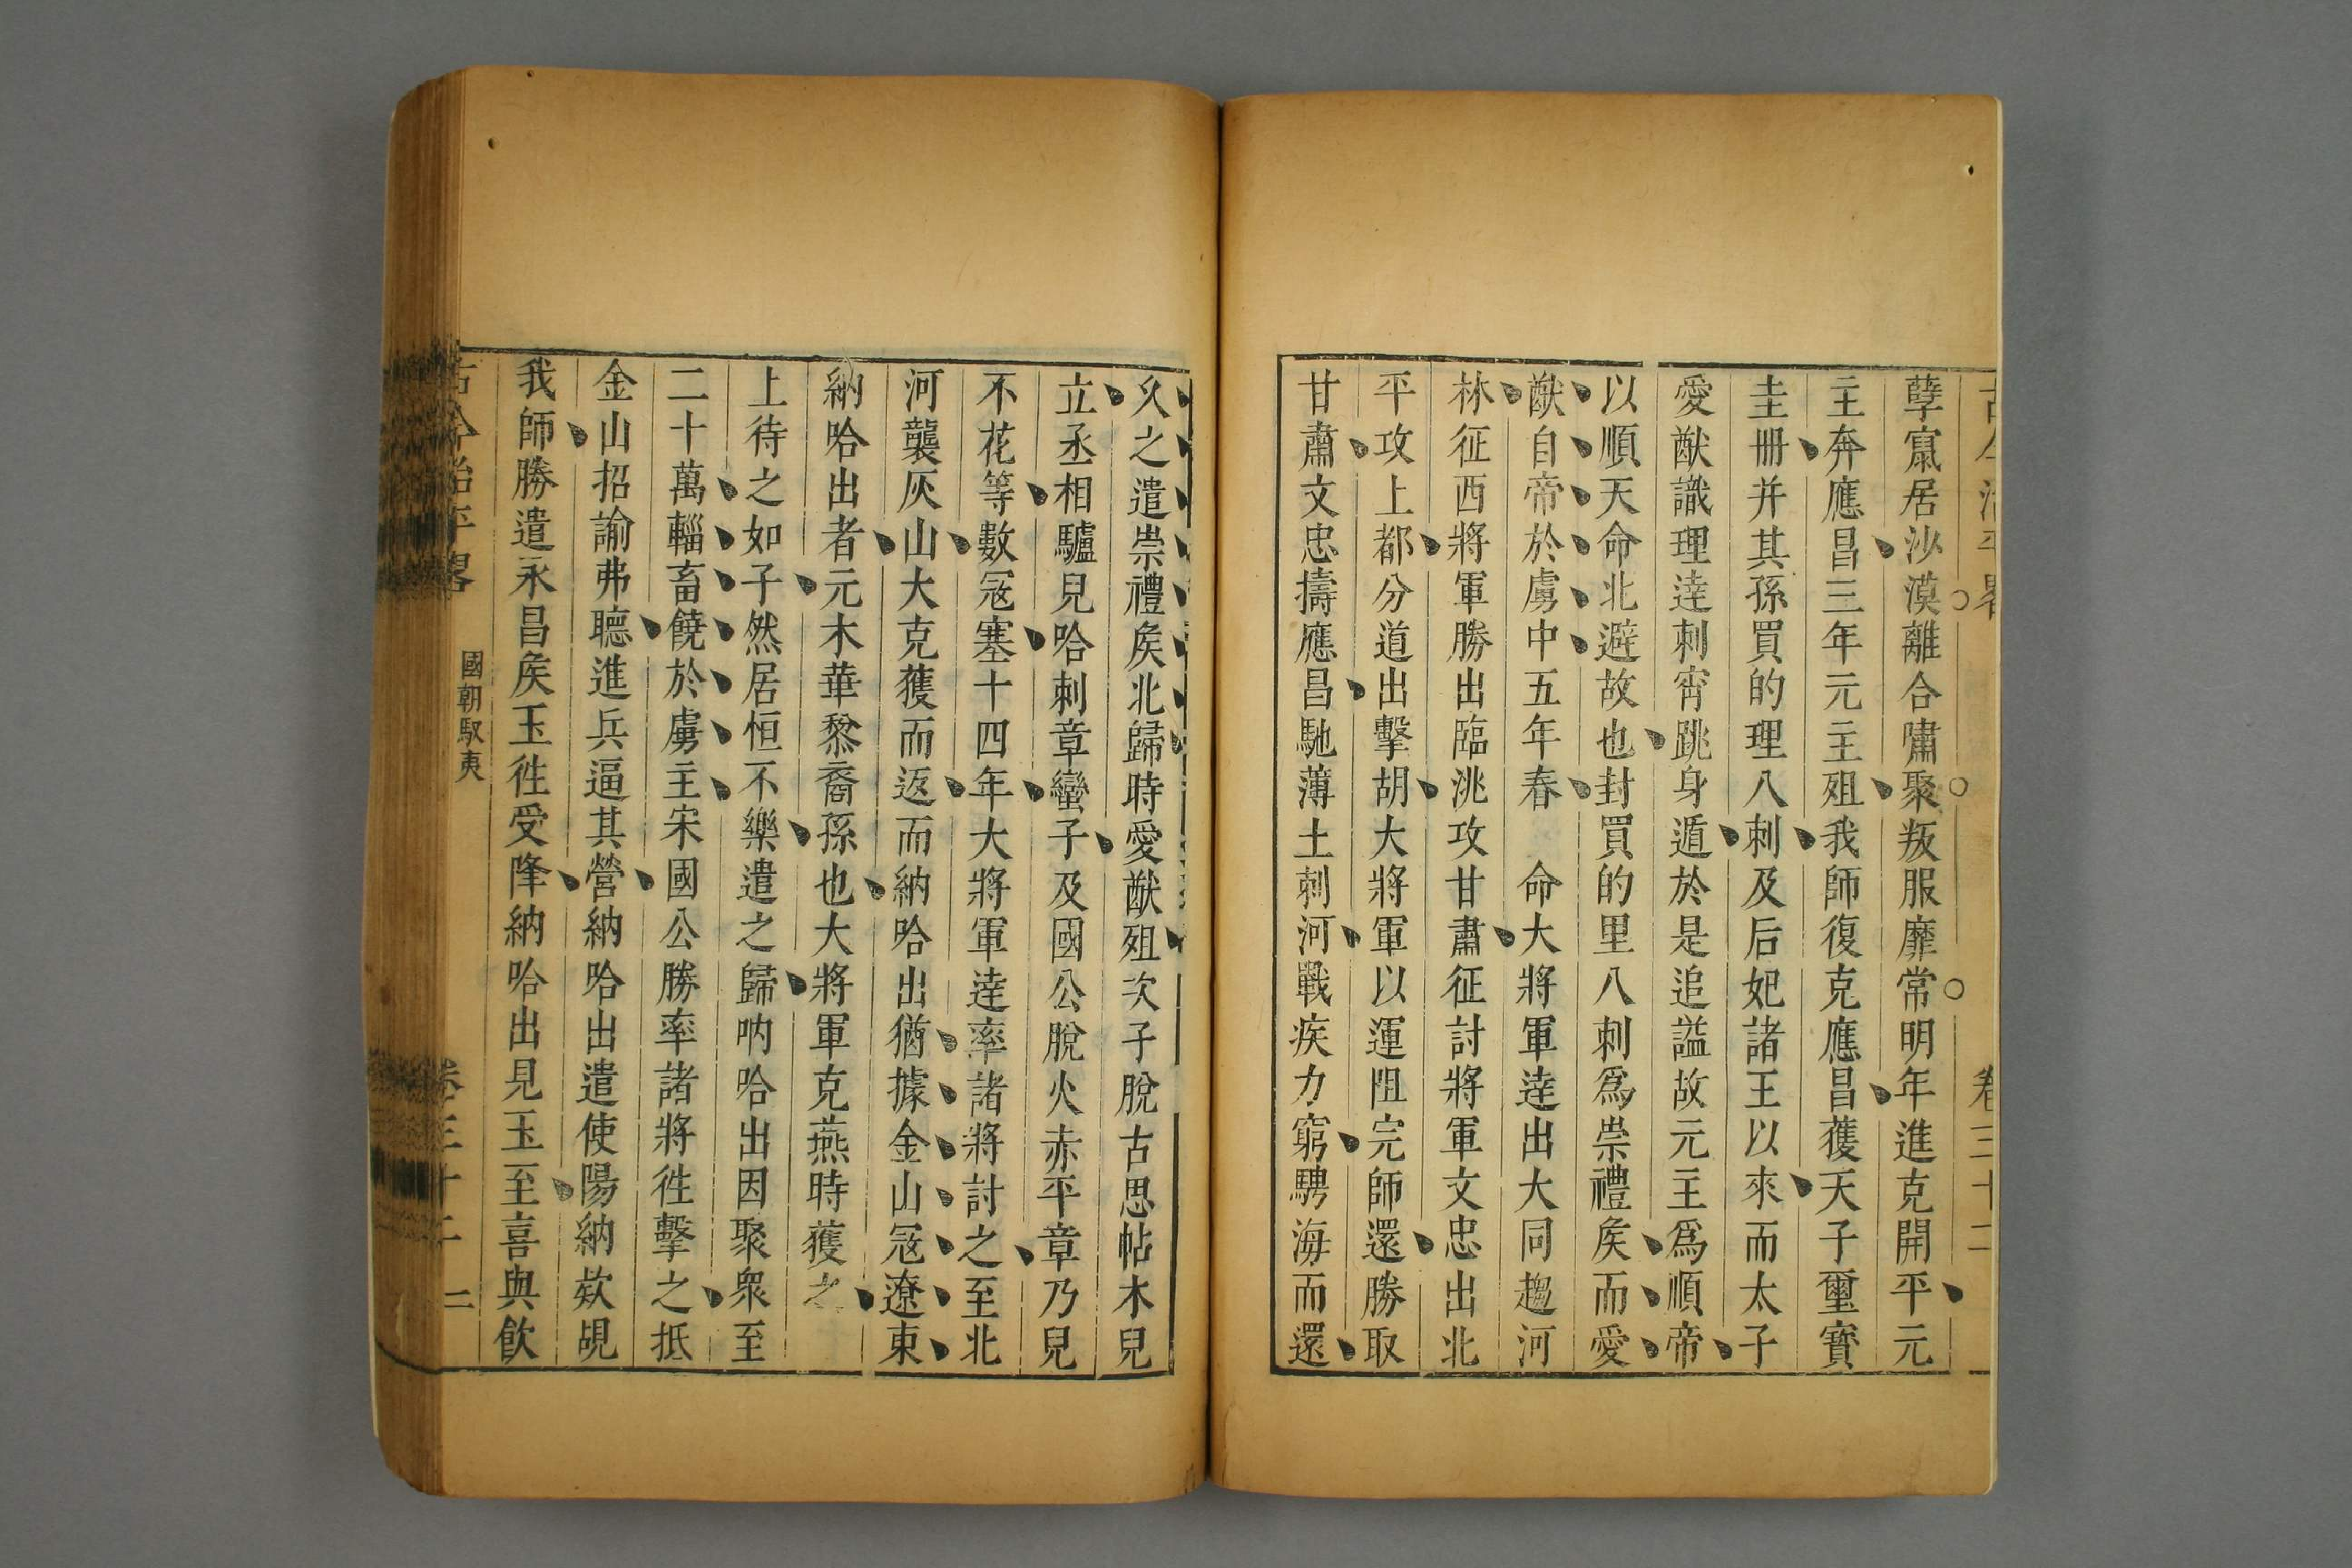 古今治平畧 卷三十二
孽窟居沙漠離合嘯聚叛服靡常明年進克開平元
主奔應昌三年元主殂我師復克應昌獲天子璽寶
圭冊并其孫買的理八剌及后妃諸王以來而太子
愛猷識理達剌宵跳身遁於是追謚故元主爲順帝
以順天命北避故也封買的里八剌爲崇禮矦而愛
猷自帝於虜中五年春 命大將軍達出大同趨河
林征西將軍勝出臨洮攻甘肅征討將軍文忠出北
平攻上都分道出擊胡大將軍以運阻完師還勝取
甘肅文忠擣應昌馳薄土剌河戰疾力窮騁海而還
久之遣崇禮矦北歸時愛猷殂次子脫古思帖木兒
立丞相驢兒哈剌章蠻子及國公脫火赤平章乃兒
不花等數冦塞十四年大將軍達率諸將討之至北
河襲灰山大克獲而返而納哈出猶據金山冦遼東
納哈出者元木華黎裔孫也大將軍克燕時獲之
上待之如子然居恒不樂遣之歸吶哈出因聚衆至
二十萬輜畜饒於虜主宋國公勝率諸將徃擊之抵
金山招諭弗聽進兵逼其營納哈出遣使陽納欸覘
我師勝遣永昌矦玉徃受降納哈出見玉至喜與飲
古今治平畧 國朝馭夷 卷三十二 二